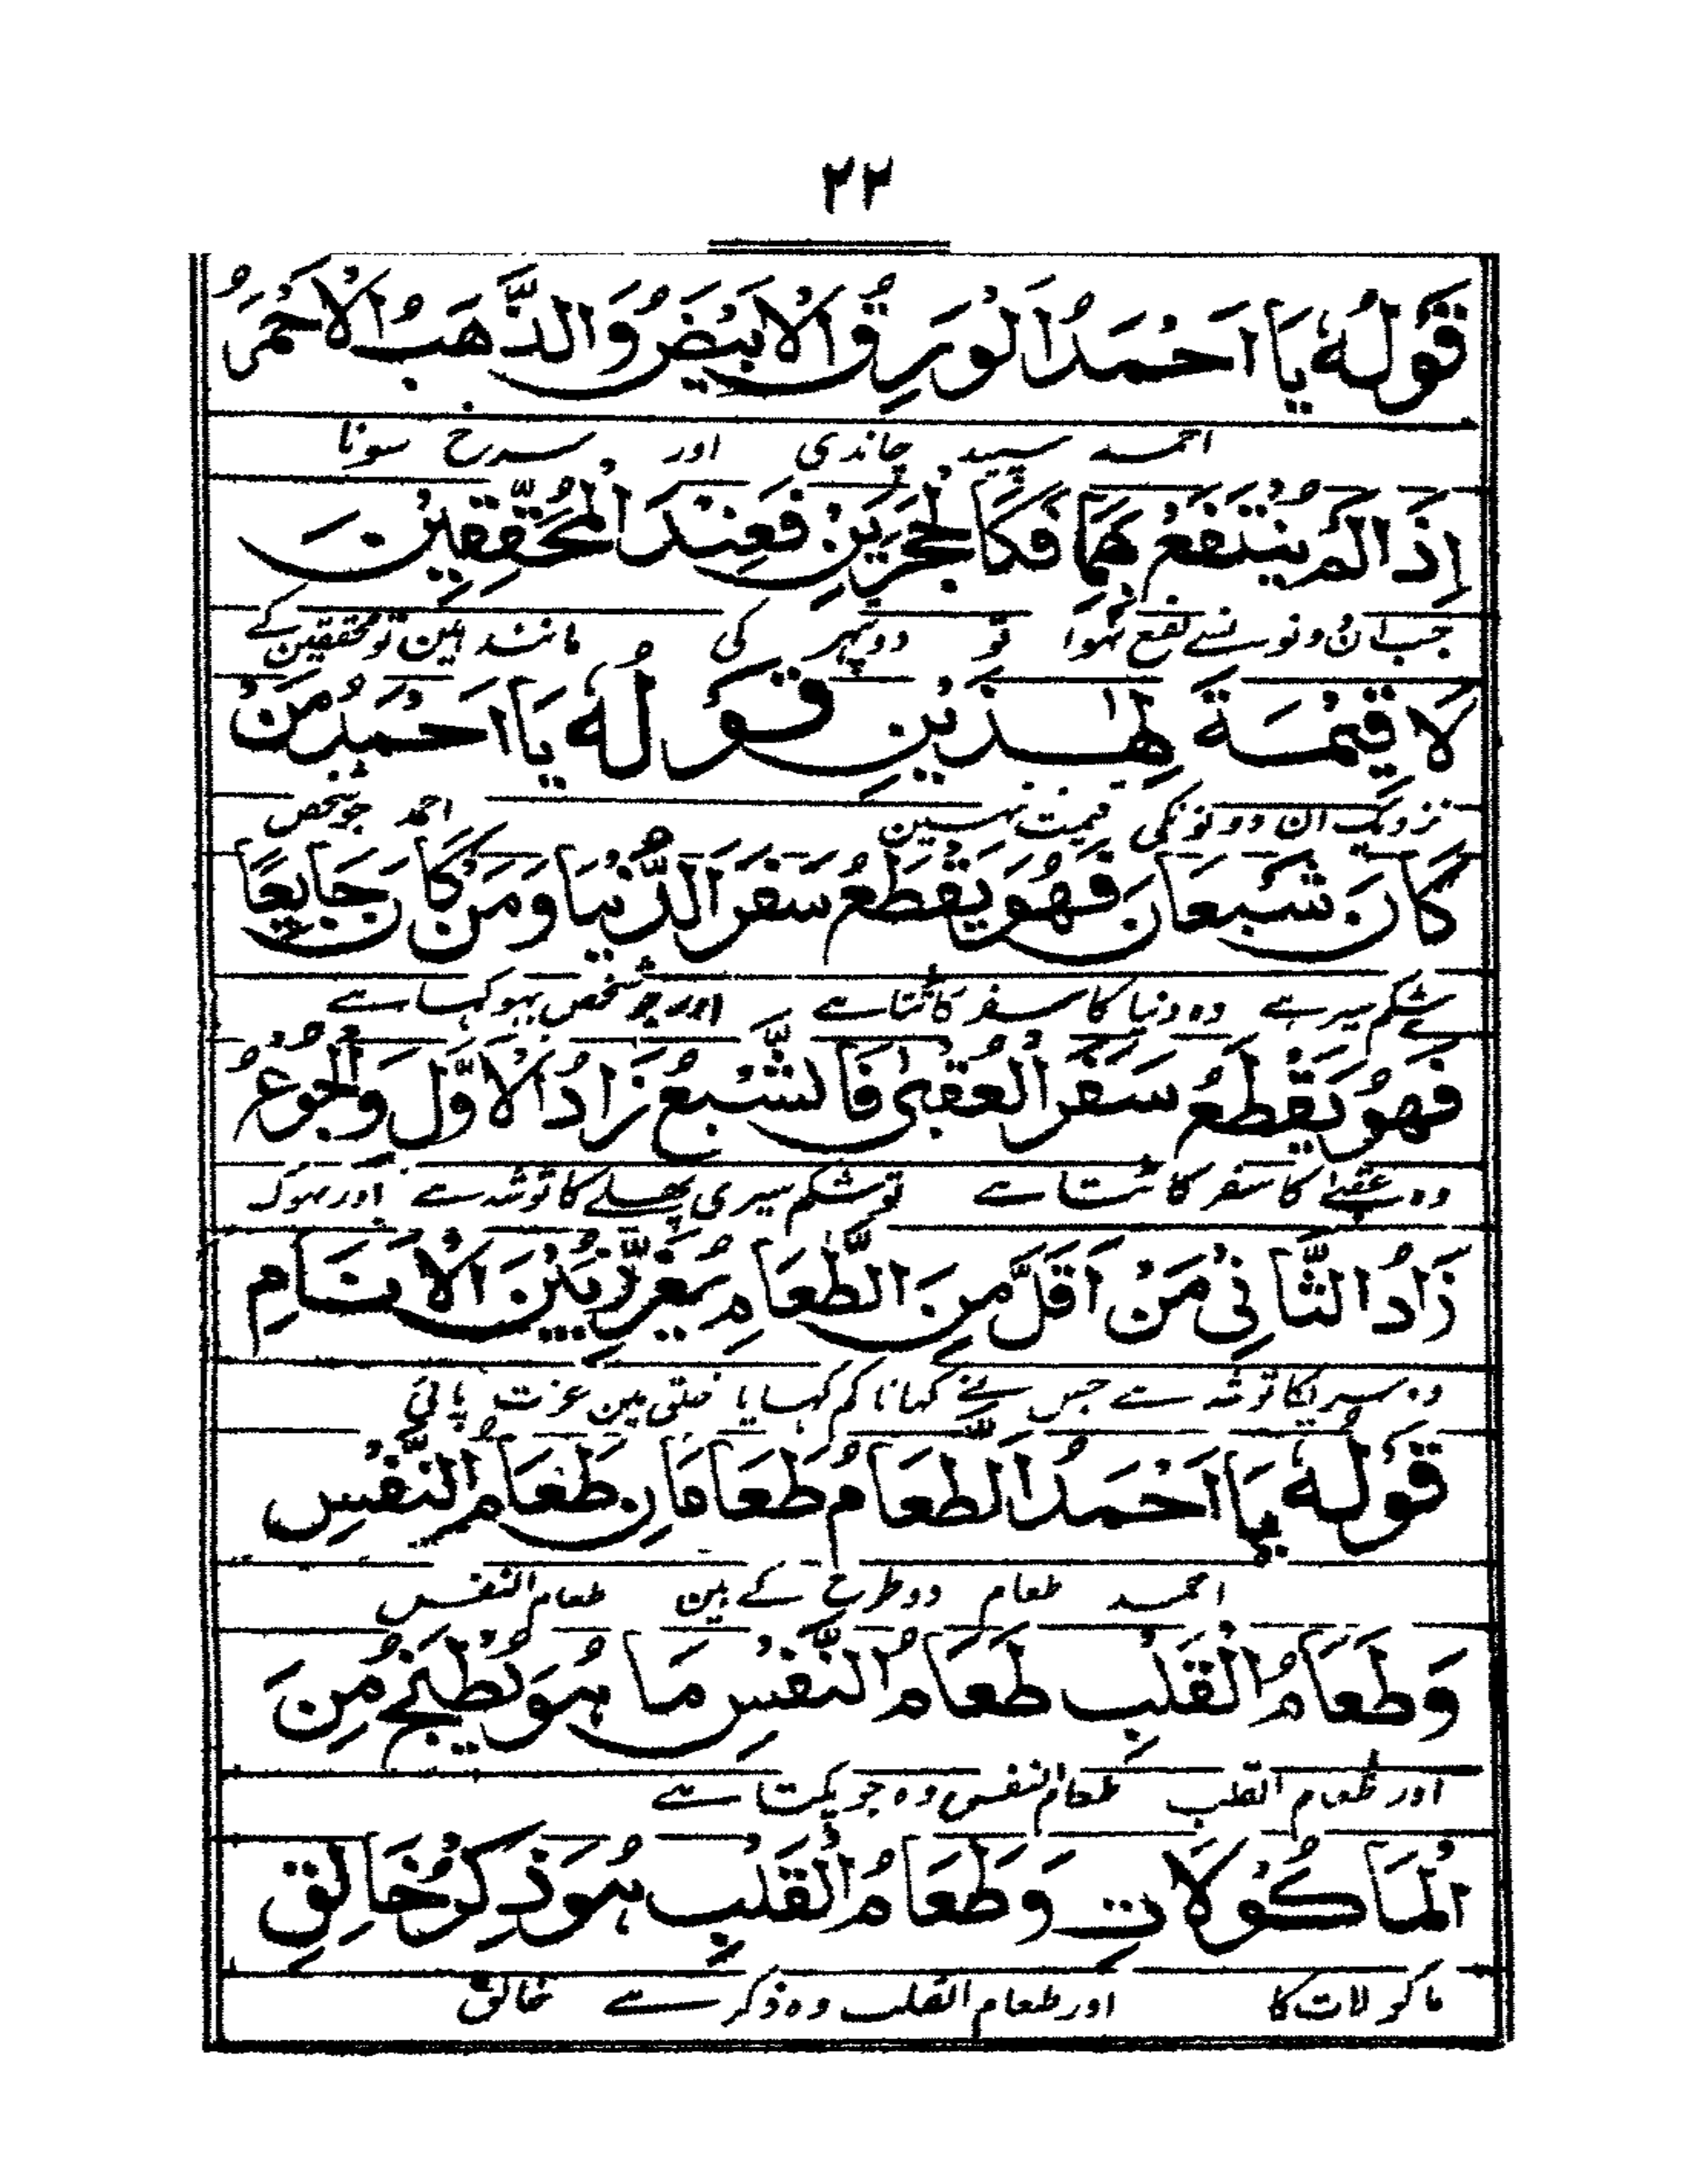 ٢٢
قَوْلُهٗ يَا اَحْمَدُ الْوَرِقُ الْاَبْيَضُ وَالذَّهَبُ الْاَحْمَرُ
احمد سپید چاندی اور سرخ سونا
اِذَا لَمْ يُنْتَفَعْ بِهِمَا فَكَالْحَجَرَيْنِ فَعِنْدَ الْمُحَقِّقِيْنَ
جب ان دونوسنے نفع نہوا تو دو پتہر کی مانند ہین تو محققین کے
لَا قِيْمَةَ لِهٰذَيْنِ قَوْلُهٗ يَا اَحْمَدُ مَنْ
نزدیک ان دونونکی قیمت نہین احمد جو شخص
كَانَ شَبْعَانَ فَهُوَ يَقْطَعُ سَفَرَ الدُّنْيَا وَمَنْ كَانَ جَايِعًا
شکم سیر ہے وہ دنیا کا سفر کاٹتا ہے اور جو شخص بہوکہا ہے
فَهُوَ يَقْطَعُ سَفَرَ الْعُقْبٰى فَالشَّبْعُ زَادُ الْاَوَّلِ وَالْجُوْعُ
وہ عقبے کا سفر کاٹتا ہے تو شکم سیری پہلے کا توشہ ہے اور بہوک
زَادُ الثَّانِىْ مَنْ اَقَلَّ مِنَ الطَّعَامِ يَعِزُّ بَيْنَ الْاَنَامِ
دوسریکا توشہ ہے جس نے کہانا کم کہایا خلق مین عزت پائی
قَوْلُهٗ يَا اَحْمَدُ الطَّعَامُ طَعَامَانِ طَعَامُ النَّفْسِ
احمد طعام دو طرح کے ہین طعام النفس
وَطَعَامُ الْقَلْبِ طَعَامُ النَّفْسِ مَا هُوَ يُطْبَخُ مِنَ
اور طعام القلب طعام النفس وہ جو پکتا ہے
الْمَأكُوْلَاتِ وَطَعَامُ الْقَلْبِ هُوَ ذِكْرُ خَالِقِ
ماکولات کا اور طعام القلب وہ ذکر ہے خالق